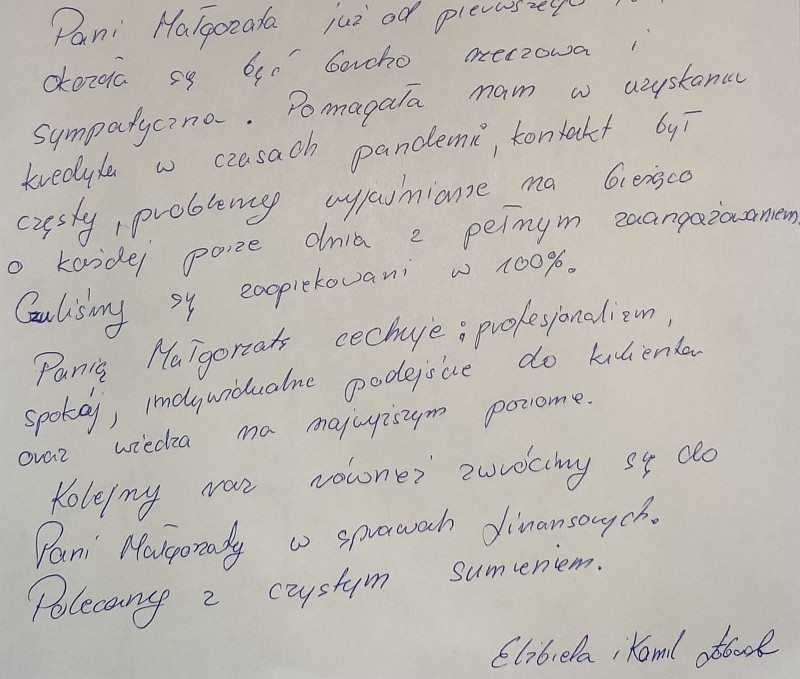 Pani Małgorzata już od pierwszego
okazała się być bardzo rzeczowa i
sympatyczna. Pomagała nam w uzyskaniu
kredytu w czasach pandemii, kontakt był
częsty, problemy wyjaśniane na bieżąco
o każdej porze dnia z pełnym zaangażowaniem.
Czuliśmy się zaopiekowani w 100%.
Panią Małgorzatę cechuje: profesjonalizm,
spokój, indywidualne podejście do klienta
oraz wiedza na najwyższym poziome.
Kolejny raz również zwrócimy się do
Pani Małgorzaty w sprawach finansowych.
Polecamy z czystym sumieniem.
Elżbieta i Kamil